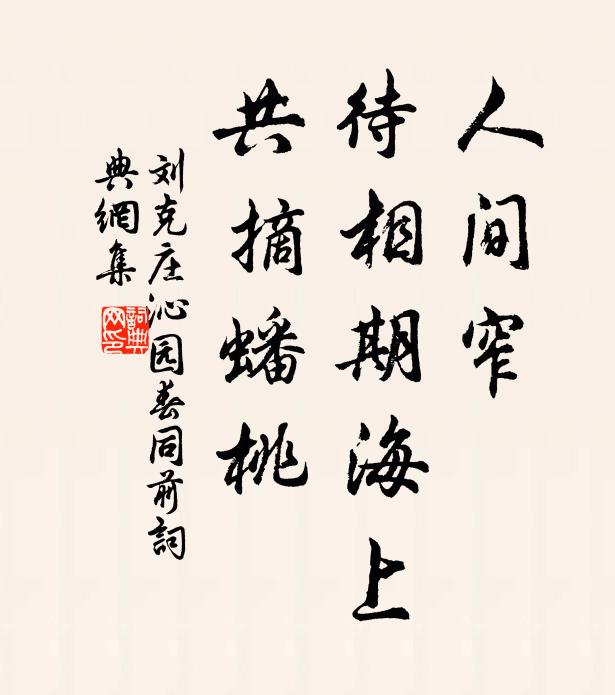 人间窄
待相期海上
共摘蟠桃
刘克庄沁园春同前詞
典網集
詞典
网印